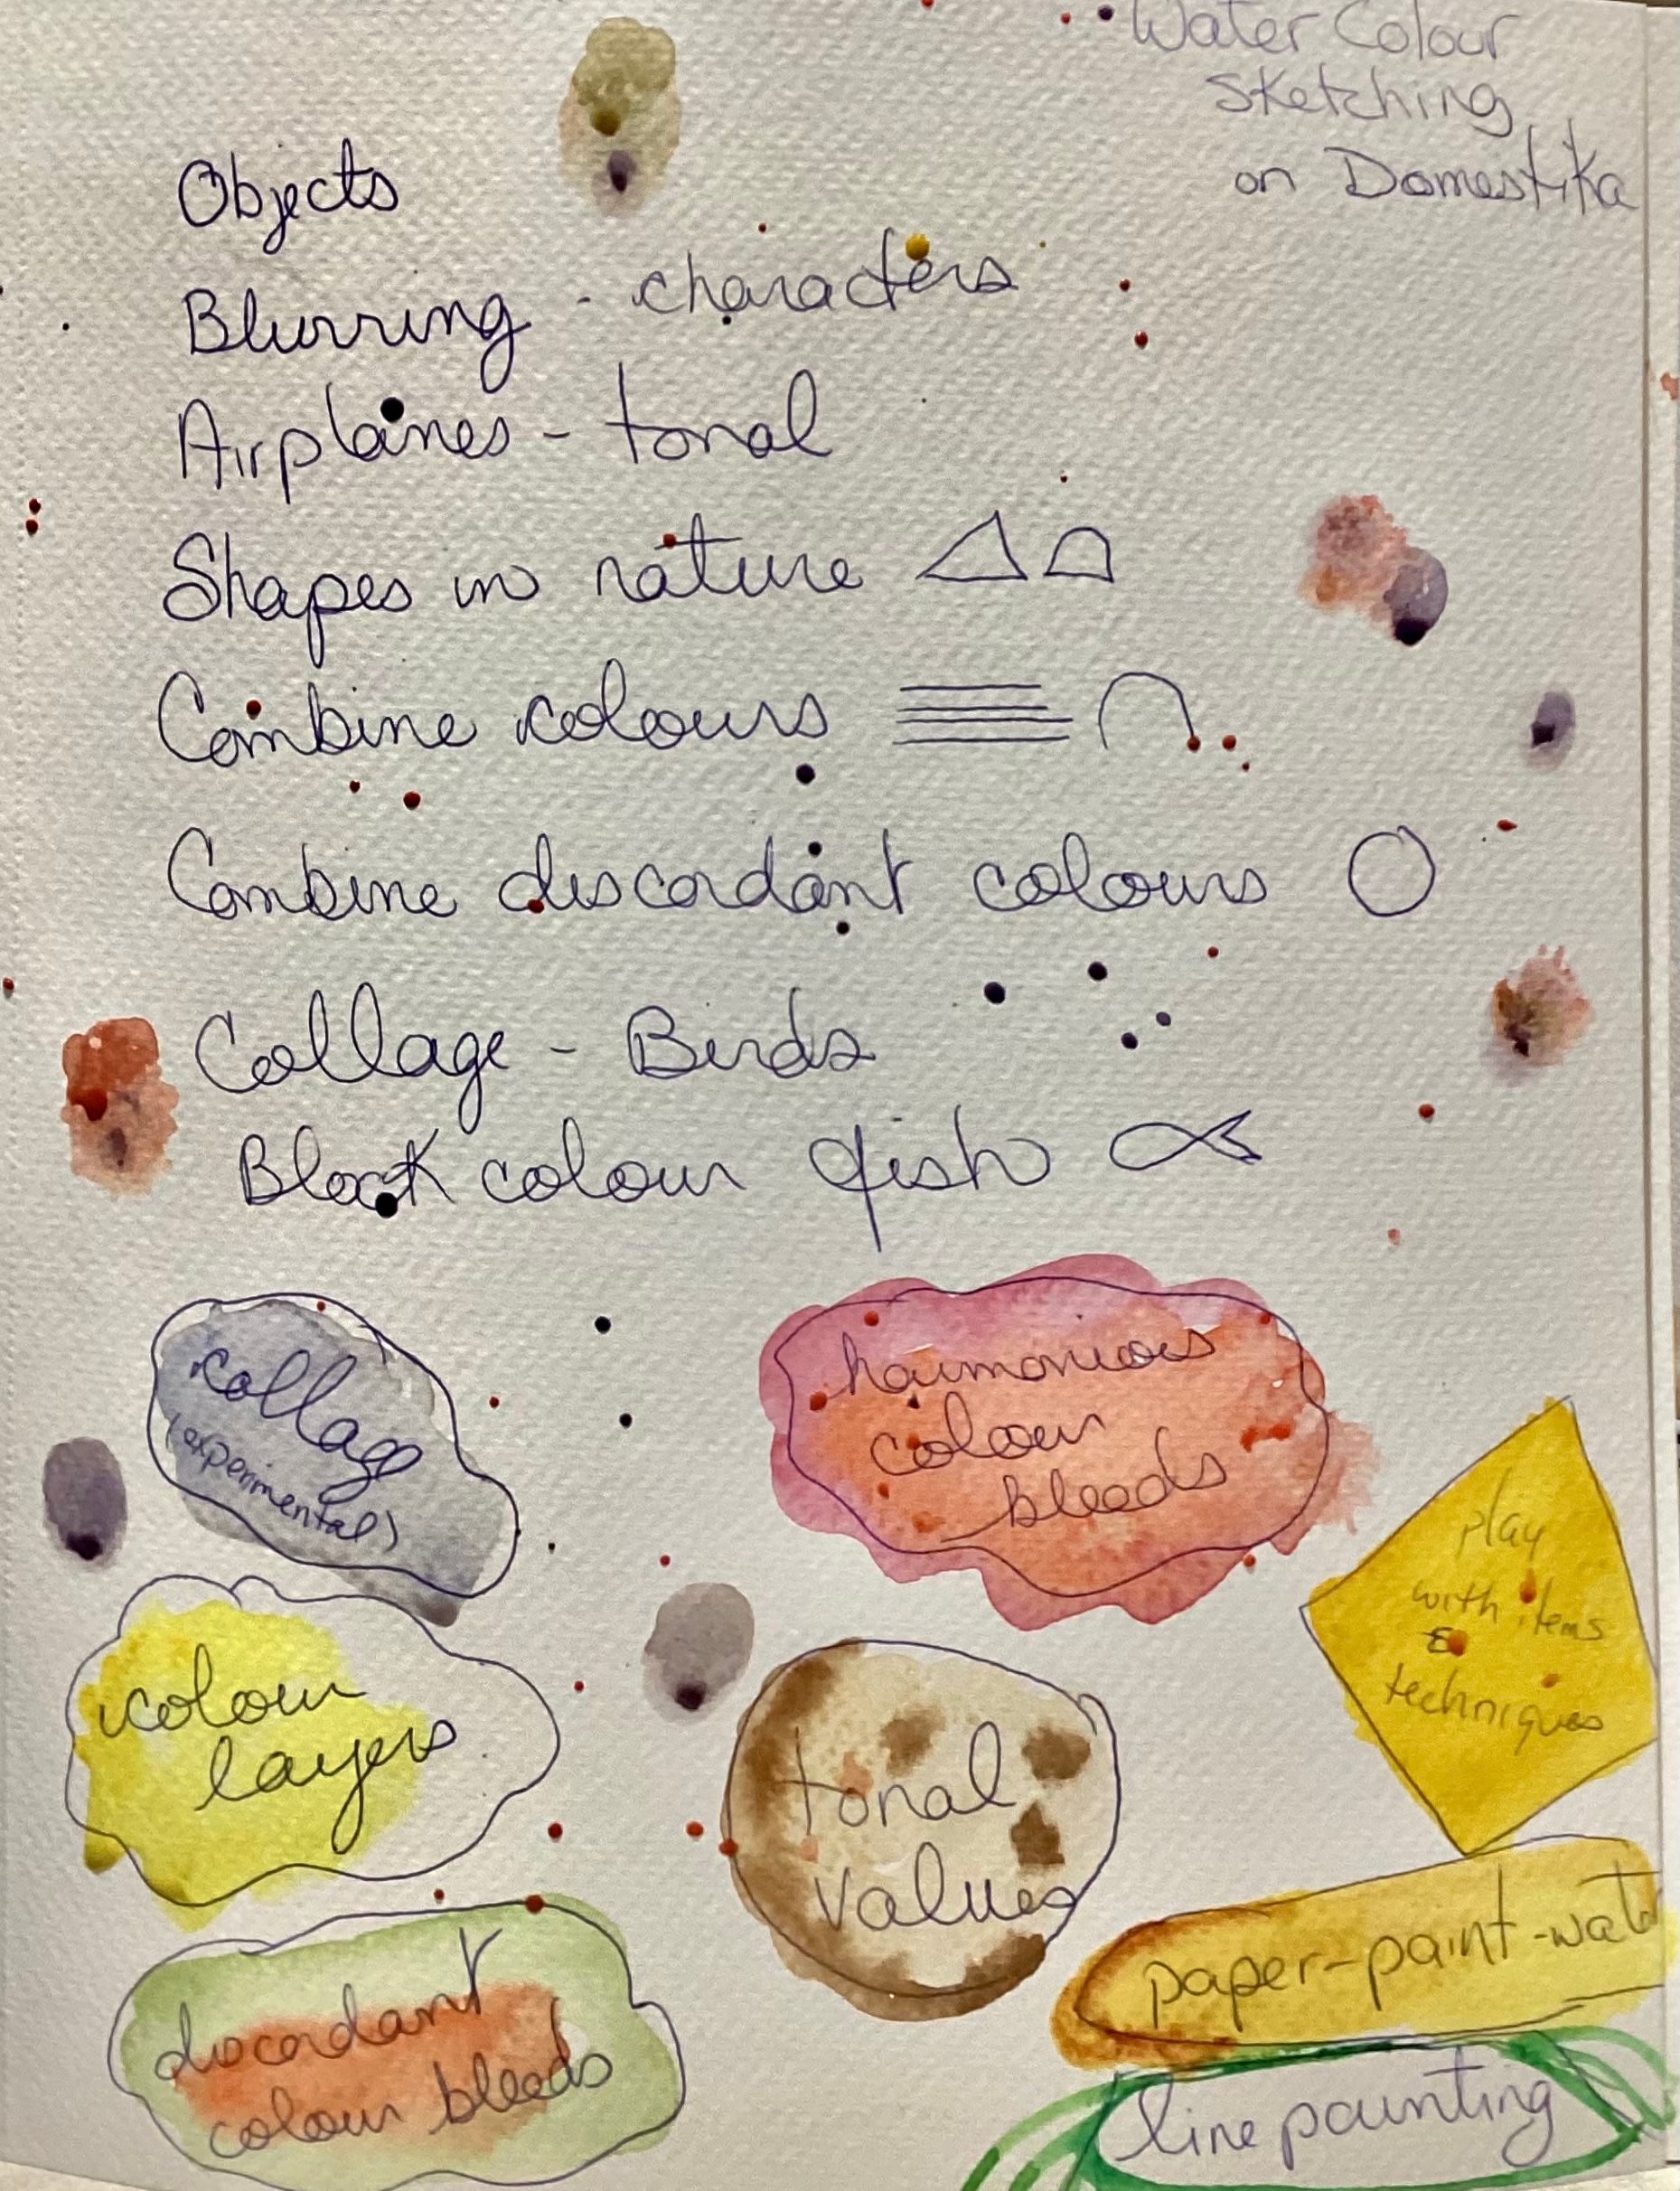 Water Colour
Sketching
on Domestika
Objects
Blurring - characters
Airplanes - tonal
Shapes in nature
Combine colours
Combine discordant colours
Collage - Birds
Block colour fish
collage
(experimental)
harmonious
colour
bleeds
play
with items
&
techniques
colour
layers
tonal
values
paper-paint-wat
discordant
colour bleeds
line painting